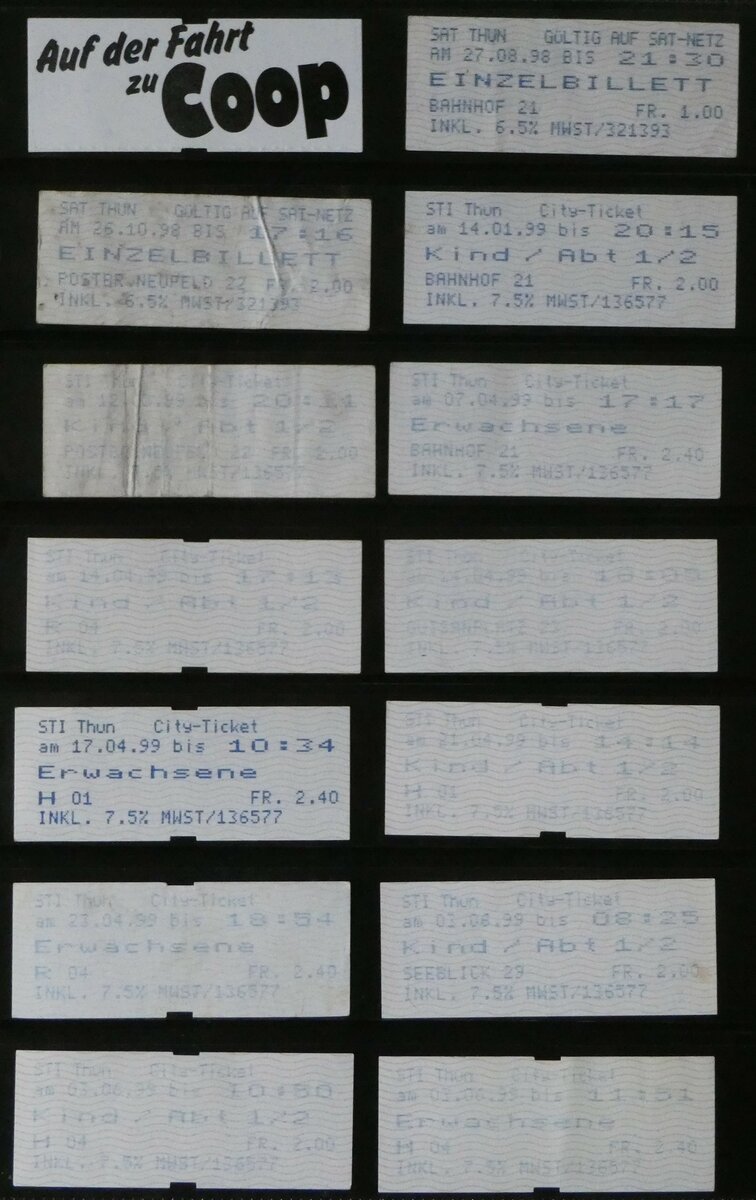 Auf der Fahrt
zu Coop
SAT THUN GÜLTIG AUF SAT-NETZ
AM 27.08.98 BIS 21:30
EINZELBILLETT
BAHNHOF 21 FR. 1.00
INKL. 6.5% MWST/321393
SAT THUN GÜLTIG AUF SAT-NETZ
AM 26.10.98 BIS 17:16
EINZELBILLETT
POSTER.NEUFELD 22 FR. 2.00
INKL. 6.5% MWST/321393
STI Thun City-Ticket
am 14.01.99 bis 20:15
Kind / Abt 1/2
BAHNHOF 21 FR. 2.00
INKL. 7.5% MWST/136577
STI Thun City-Ticket
am bis 20:11
Kind / Abt 1/2
POSTER.NEUFELD 22 FR. 2.00
INKL. MWST/136577
STI Thun City-Ticket
am 07.04.99 bis 17:17
Erwachsene
BAHNHOF 21 FR. 2.40
INKL. 7.5% MWST/136577
STI Thun City-Ticket
am 14.04.99 bis 17:13
Kind / Abt 1/2
R 04 FR. 2.00
INKL. 7.5% MWST/136577
STI Thun City-Ticket
am 14.04.99 bis
Kind / Abt 1/2
FR. 2.00
INKL. 7.5% MWST/136577
STI Thun City-Ticket
am 17.04.99 bis 10:34
Erwachsene
H 01 FR. 2.40
INKL. 7.5% MWST/136577
STI Thun City-Ticket
am 21.04.99 bis 14:14
Kind / Abt 1/2
H 01 FR. 2.00
INKL. 7.5% MWST/136577
STI Thun City-Ticket
am 23.04.99 bis 18:54
Erwachsene
R 04 FR. 2.40
INKL. 7.5% MWST/136577
STI Thun City-Ticket
am 03.06.99 bis 08:25
Kind / Abt 1/2
SEEBLICK 29 FR. 2.00
INKL. 7.5% MWST/136577
STI Thun City-Ticket
am 03.06.99 bis 10:50
Kind / Abt 1/2
H 04 FR. 2.00
INKL. 7.5% MWST/136577
STI Thun City-Ticket
am 03.06.99 bis 11:51
Erwachsene
H 04 FR. 2.40
INKL. 7.5% MWST/136577